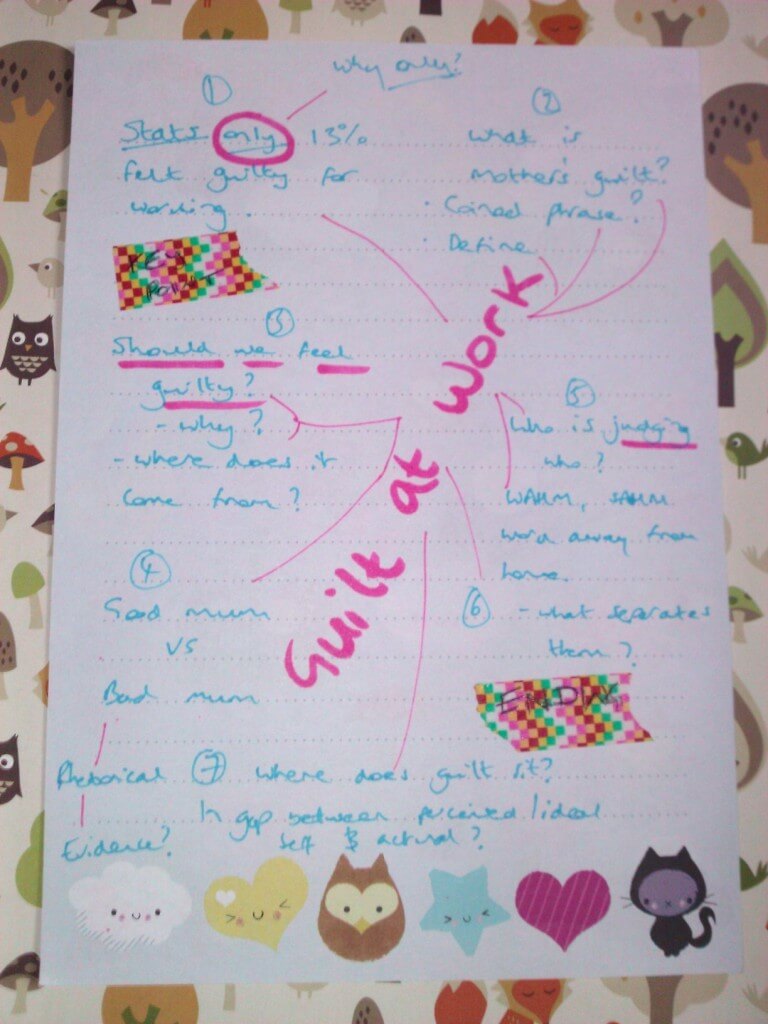 why only?
1
Stats only 13%
felt guilty for
working.
KEY
POINT
2
what is
mother's guilt?
· Coined phrase?
· Define
3
Should we feel
guilty?
- why?
- where does it
come from?
Guilt at Work
5
Who is judging
who?
WAHM, SAHM
work away from
home.
4
Good mum
VS
Bad mum
Rhetorical
Evidence?
6
- what separates
them?
ENDING
7
where does guilt sit?
In gap between perceived/ideal
self & actual?